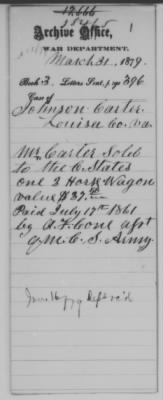 Archive Office,
WAR DEPARTMENT.
March 31, 1879.
Book 3. Letters Sent, page 396
Case of
Johnson Carter
Louisa Co. Va
Mr Carter Sold
to the C. States
one 2 Horse Wagon
value $37.
Paid July 17th 1861
by A. F. Cone
Q M. C. S. Army